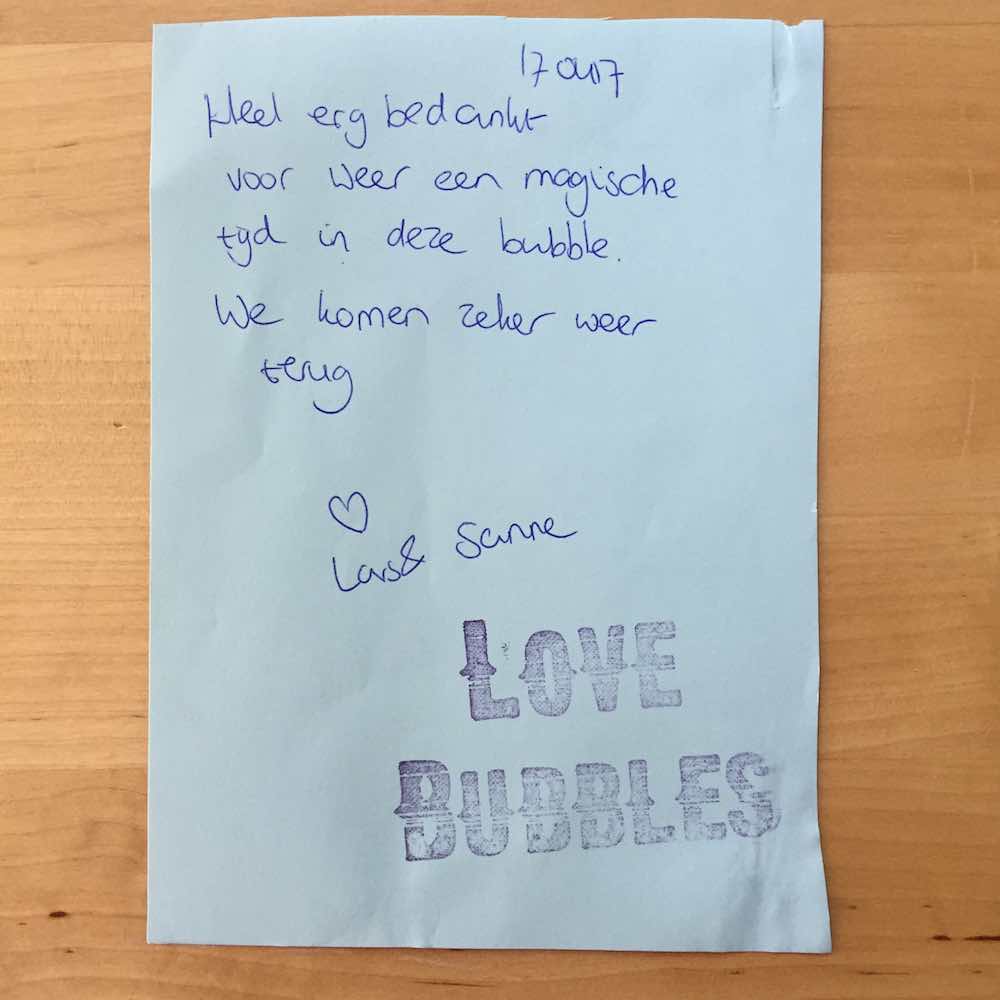 17 04 17
Heel erg bedankt
voor weer een magische
tijd in deze bubble.
We komen zeker weer
terug
♡
Lars & Sanne
LOVE
BUBBLES